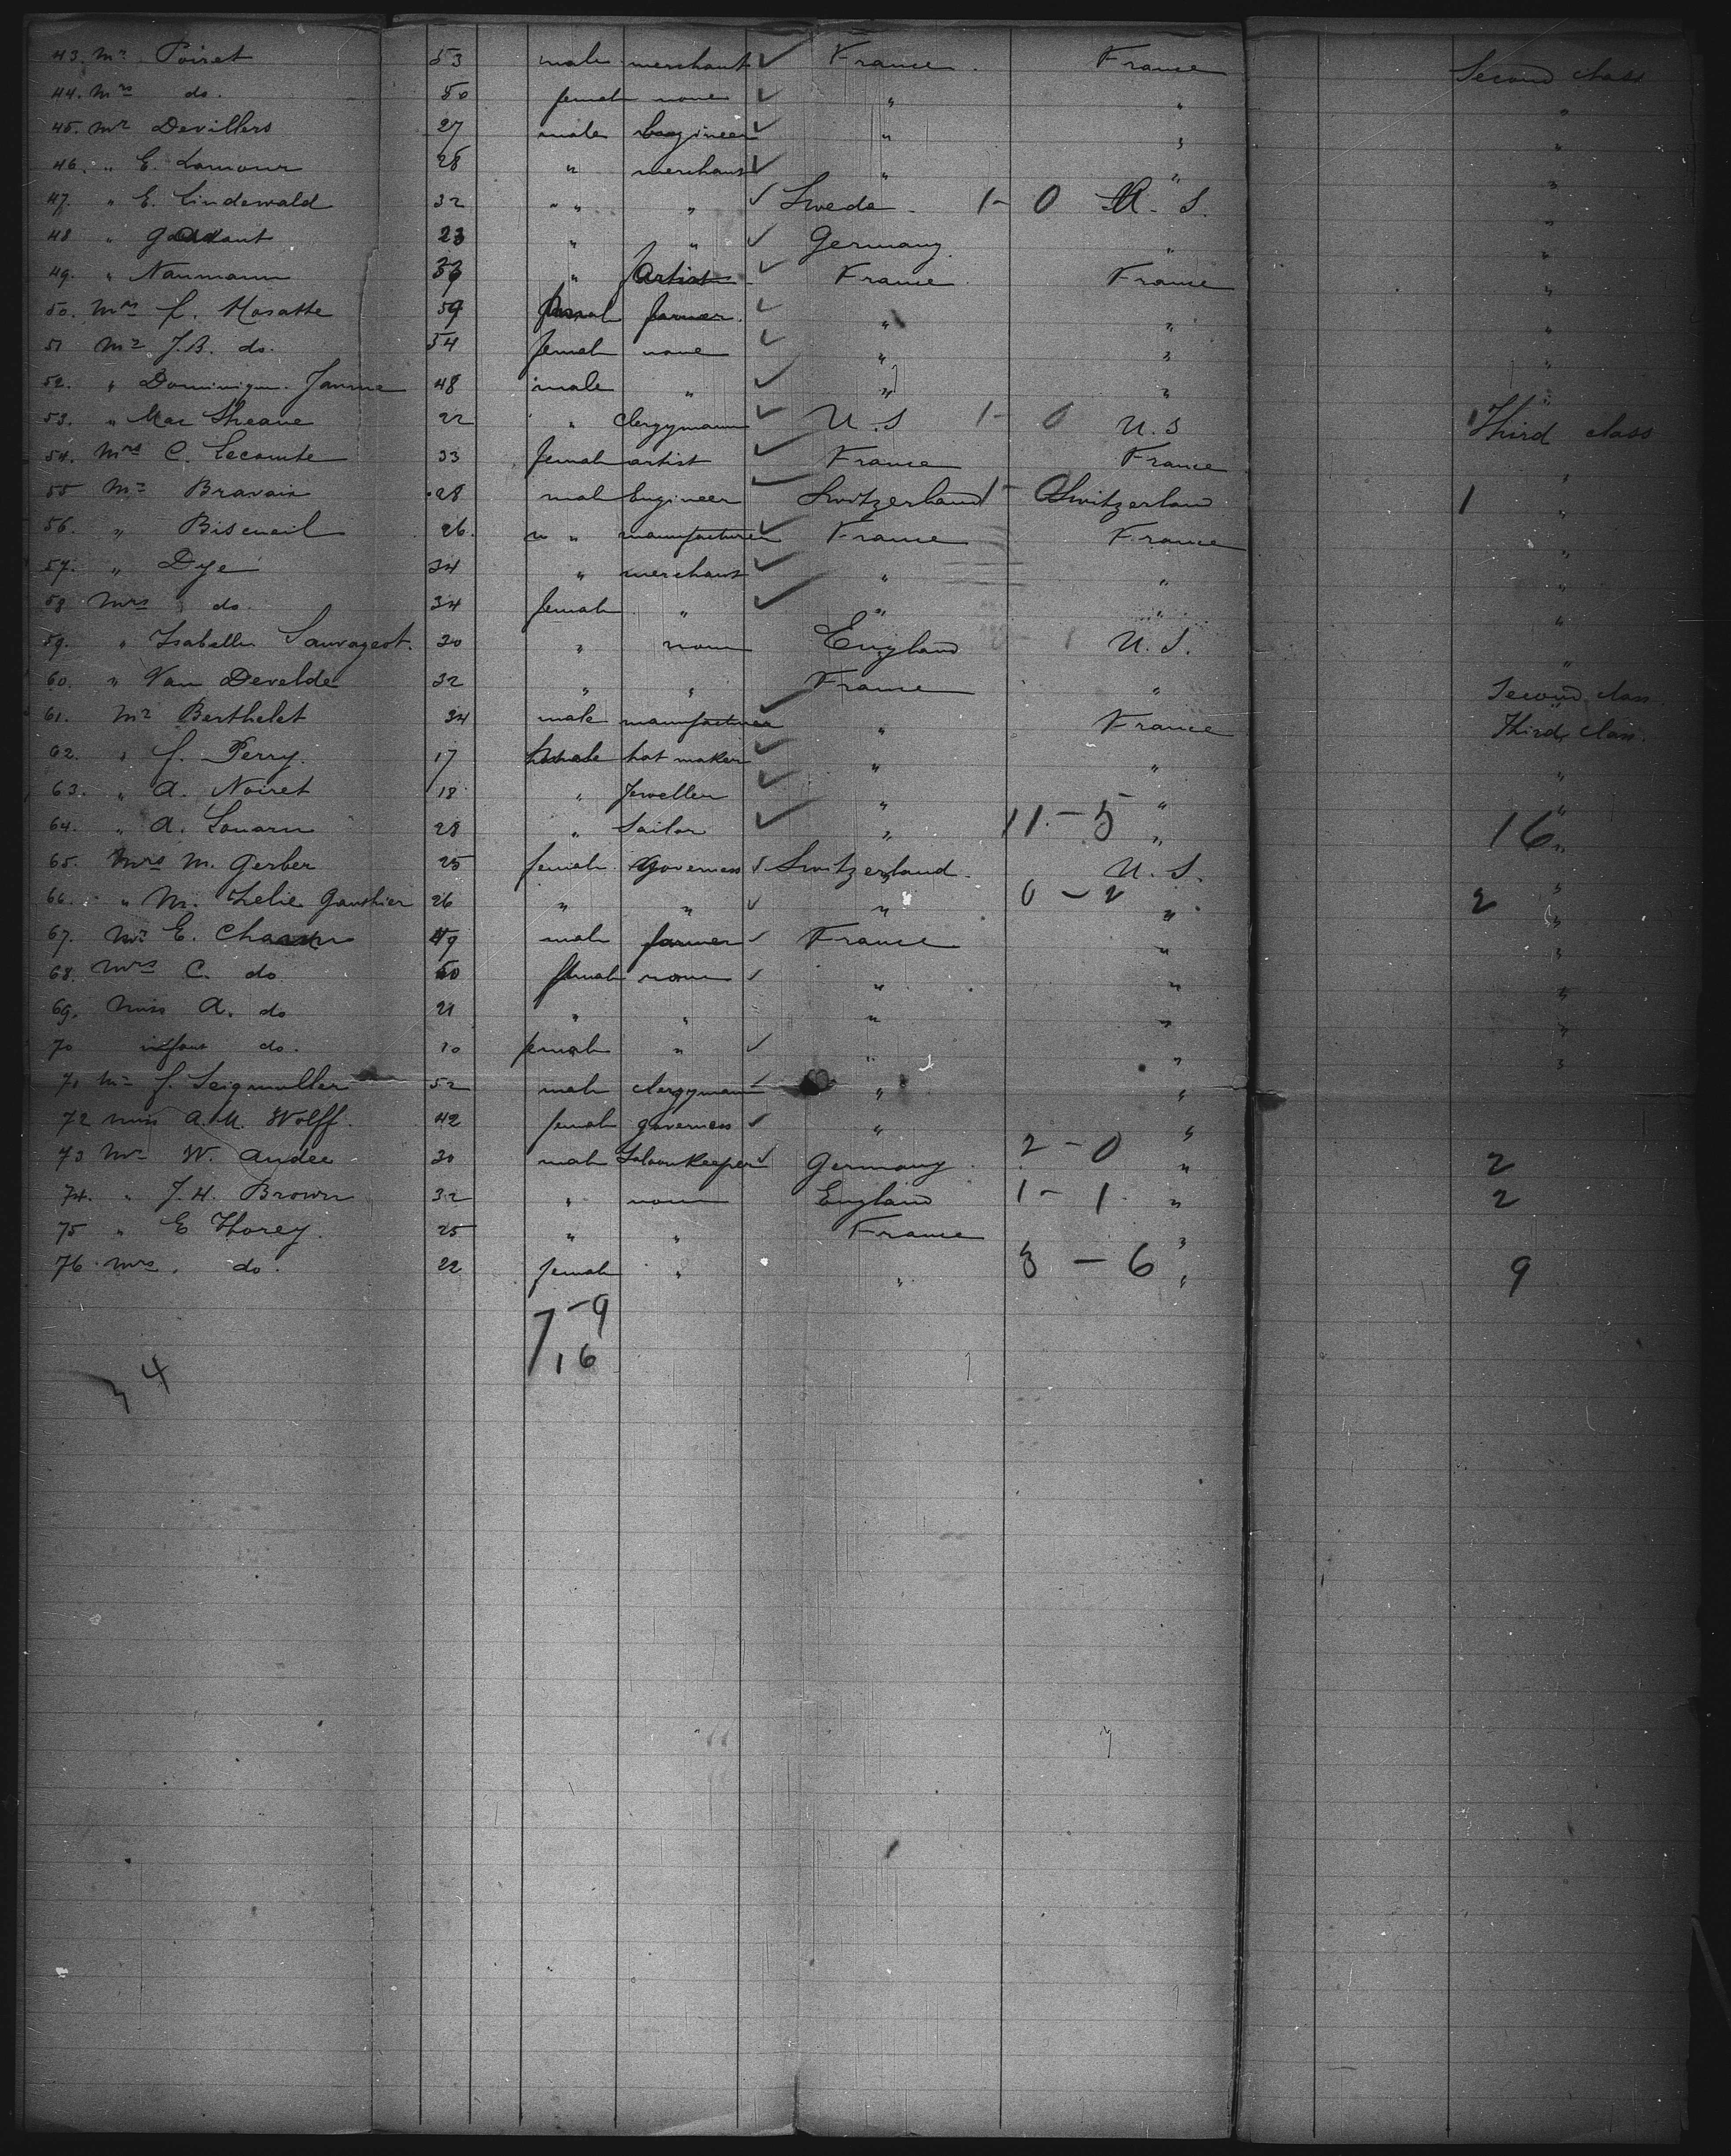 43. Mr. Poiret 53 male merchant ✓ France. France Second class
44. Mrs do. 50 female none ✓ " " "
45. Mr Devillers 27 male Engineer ✓ " " "
46. " E. Lamour 28 " merchant ✓ " " "
47. " E. Lindewald 32 " " " ✓ Swede. 1- 0 U. S. "
48 " 23 " " ✓ Germany. " "
49. " Naumann 33 " Artist ✓ France. France "
50. Mrs f. Mosatte 59 female farmer. ✓ " " "
51 Mr J.B. do. 54 female none ✓ " " "
52. " Dominique Jamme 48 male " ✓ " " "
53. " Mac Sheane 22 " Clergymann ✓ U. S 1- 0 U. S 1 Third class
54. Mrs C. Lecomte 33 female artist ✓ France France "
55 Mr Bravais 28 male Engineer ✓ Switzerland 1- 0 Switzerland 1 "
56. " Biscueil 26. " " manufacturer ✓ France France "
57. " Dye 34 " merchant ✓ " " "
58 Mrs do. 34 female " ✓ " " "
59. " Isabelle Sauvageot. 30 " none England 1 U. S. "
60. " Van Develde 32 " " France " Second class
61. Mr Berthelet 34 male manufacturer ✓ " France Third class.
62. " f. Perry. 17 male hat maker ✓ " " "
63. " A. Noiret 18 " Jeweller ✓ " " "
64. " A. Louarn 28 " Sailor ✓ " 11-5 " 16 "
65. Mrs M. Gerber 25 female Governess ✓ Switzerland. U. S. "
66. " M. Zelie Gauthier 26 " " ✓ " 0-2 " 2 "
67. Mr E. 49 male farmer ✓ France " "
68. Mrs C. do 50 female none ✓ " " "
69. Miss A. do 21 " " " " "
70 infant do. 10 female " ✓ " " "
71 Mr f. Seigmuller 52 male clergyman ✓ " "
72 Miss A. M. Wolff. 42 female governess ✓ " "
73 Mr W. Andee 30 male Saloon Keeper ✓ Germany. 2-0 " 2
74. " J. H. Brown 32 " none England 1-1 " 2
75 " E Thorey. 25 " " France "
76. Mrs. do. 22 female " " 3-6 " 9
7-9
16
4